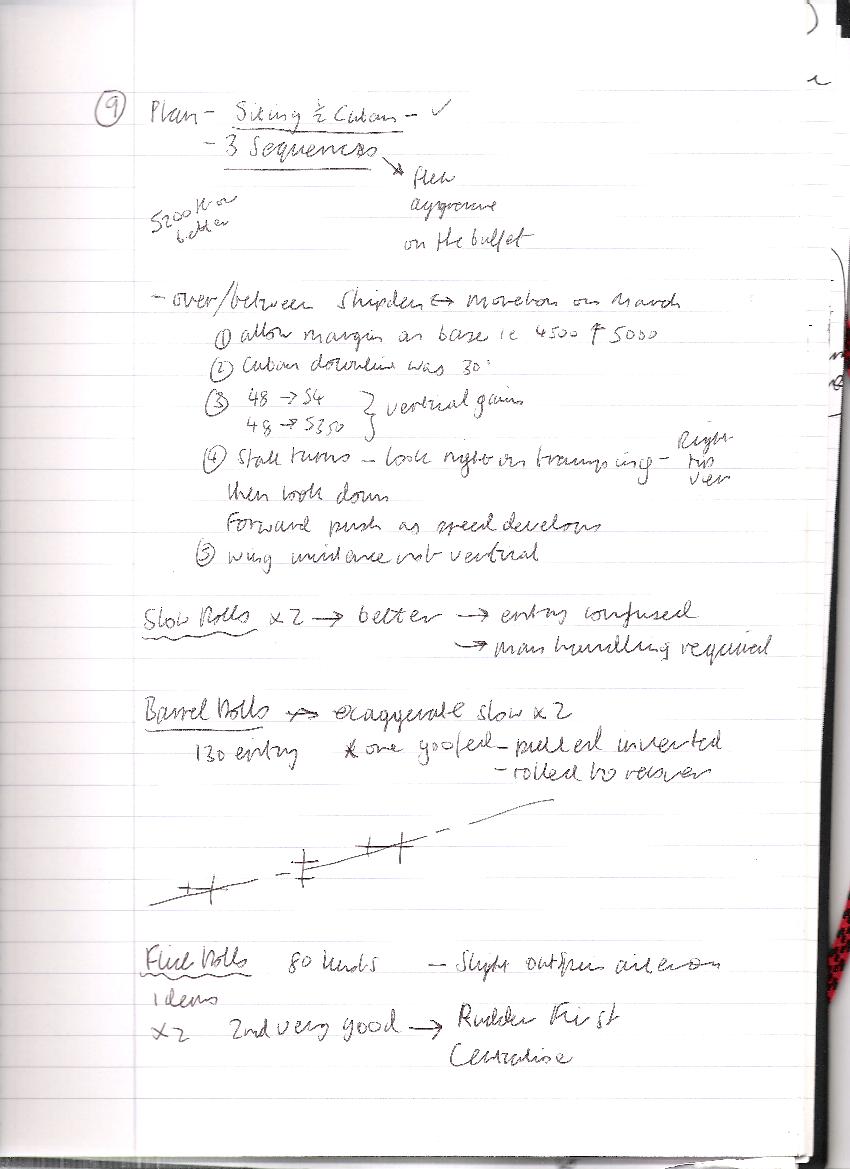 9 Plan - Siting ½ Cuban - ✓
- 3 Sequences
flew
aggressive
on the bullet
5200 ft or
better
- over/between Shipden ↔ Moreton on March
① allow margin on base ie 4500 ↑ 5000
② Cuban downline was 30°
③ 48 → 54 } vertical gains
48 → 5350
④ Stall turns - look right on tramping - Right
tip
view
then look down
Forward push as speed develops
⑤ wing not vertical
Slow Rolls x 2 → better → entry confused
→ man handling required
Barrel Rolls → exaggerate slow x 2
130 entry * one goofed - pulled inverted
- rolled to recover
Flick Rolls 80 knots - Slight outspin aileron
1 demo
x2 2nd very good → Rudder First
Centralise